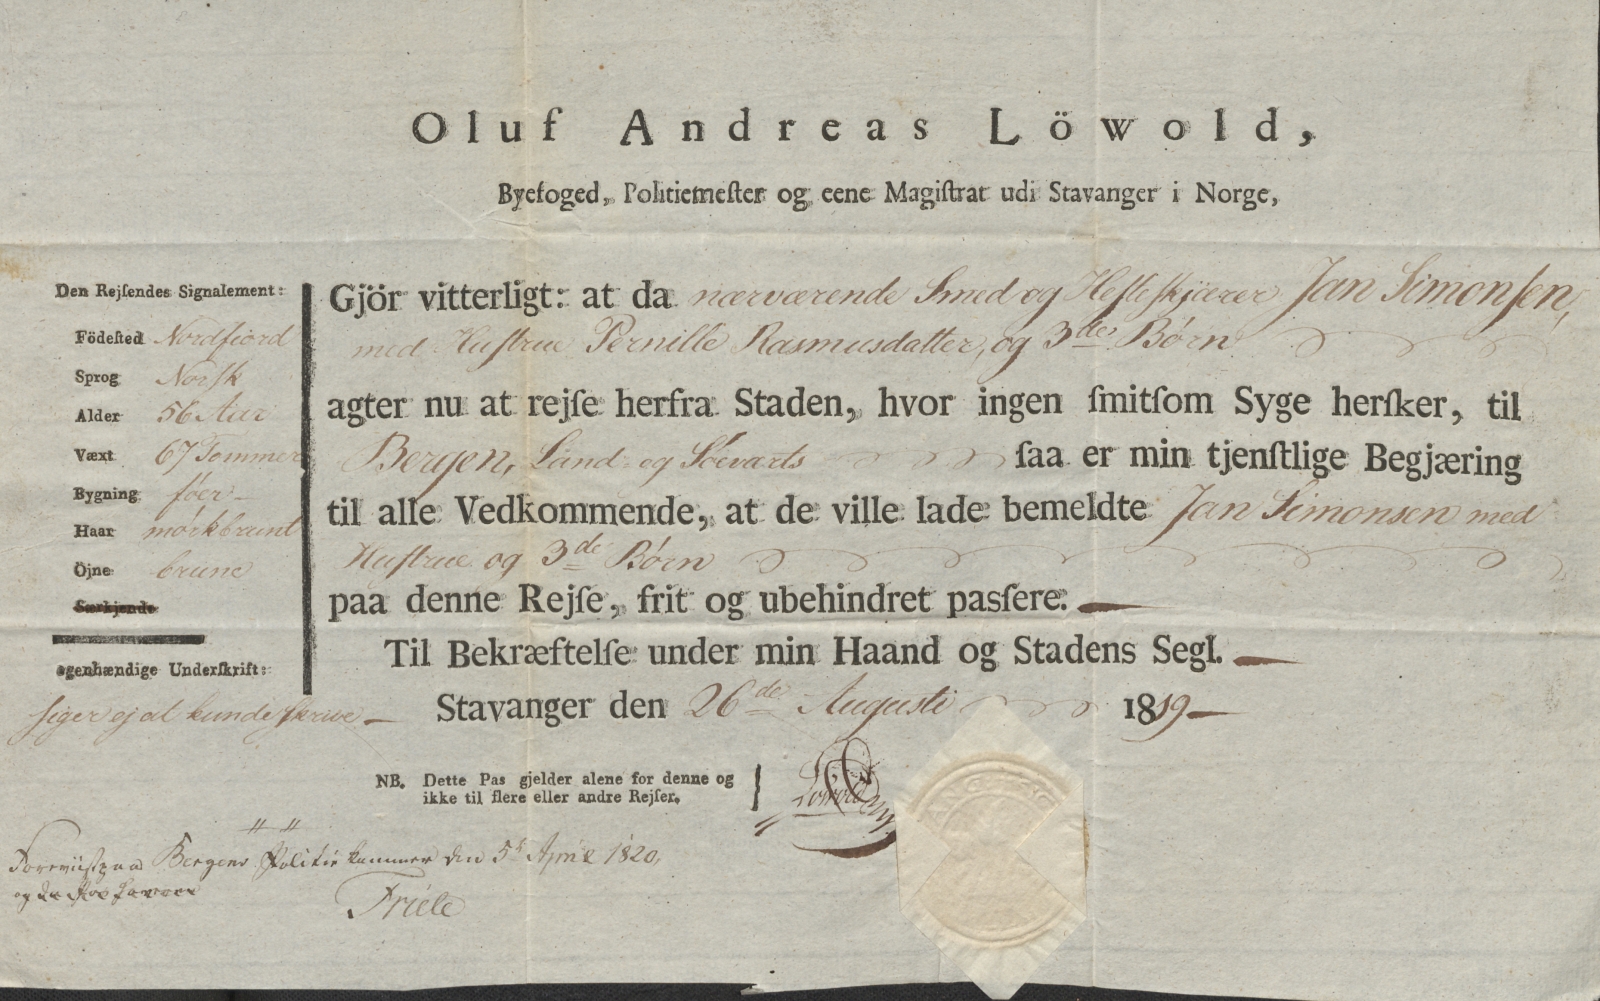 Oluf Andreas Löwold,
Byefoged, Politiemeſter og eene Magiſtrat udi Stavanger i Norge,
Den Rejſendes Signalement:
Födeſted Nordfiord
Sprog Norſk
Alder 56 Aar
Væxt 67 Tommer
Bygning føer
Haar mørkbrunt
Öjne brune
Særkjende
egenhændige Underſkrift:
siger ej at kunde ſkrive
Gjör vitterligt: at da nærværende Smed og Heſteſkjærer Jan Simonſen,
med Huſtrue Pernille Rasmusdatter, og 3de Børn
agter nu at rejſe herfra Staden, hvor ingen ſmitſom Syge herſker, til
Bergen, Land- og Søeværts ſaa er min tjenſtlige Begjæring
til alle Vedkommende, at de ville lade bemeldte Jan Simonsen med
Huſtrue og 3de Børn
paa denne Rejſe, frit og ubehindret paſsere.
Til Bekræftelſe under min Haand og Stadens Segl.
Stavanger den 26de Augusti 1819
NB. Dette Pas gjelder alene for denne og
ikke til flere eller andre Rejſer.
Löwold
Foreviiſt paa Bergens Politie kammer den 5t April 1820,
Friele